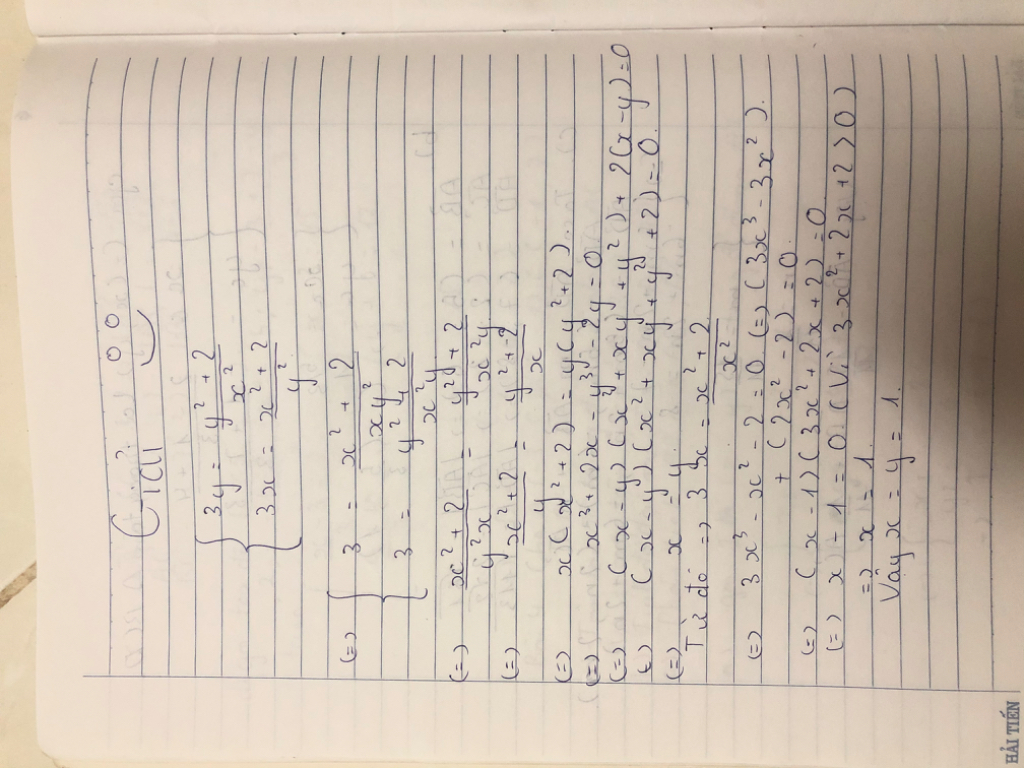 Giải
3y = y² + 2 / x²
3x = x² + 2 / y²
(=) 3 = x² + 2 / xy²
3 = y² + 2 / x²y
(=) x² + 2 / y²x = y² + 2 / x²y
(=) x² + 2 / y = y² + 2 / x
(=) x(x² + 2) = y(y² + 2).
(=) x³ + 2x - y³ - 2y = 0
(=) (x - y)(x² + xy + y²) + 2(x - y) = 0
(=) (x - y)(x² + xy + y² + 2) = 0.
(=) x = y
Từ đó => 3x = x² + 2 / x²
(=) 3x³ - x² - 2 = 0 (=) (3x³ - 3x²).
+ (2x² - 2) = 0.
(=) (x - 1)(3x² + 2x + 2) = 0
(=) x - 1 = 0 (Vì 3x² + 2x + 2 > 0)
=> x = 1
Vậy x = y = 1.
HẢI TIẾN